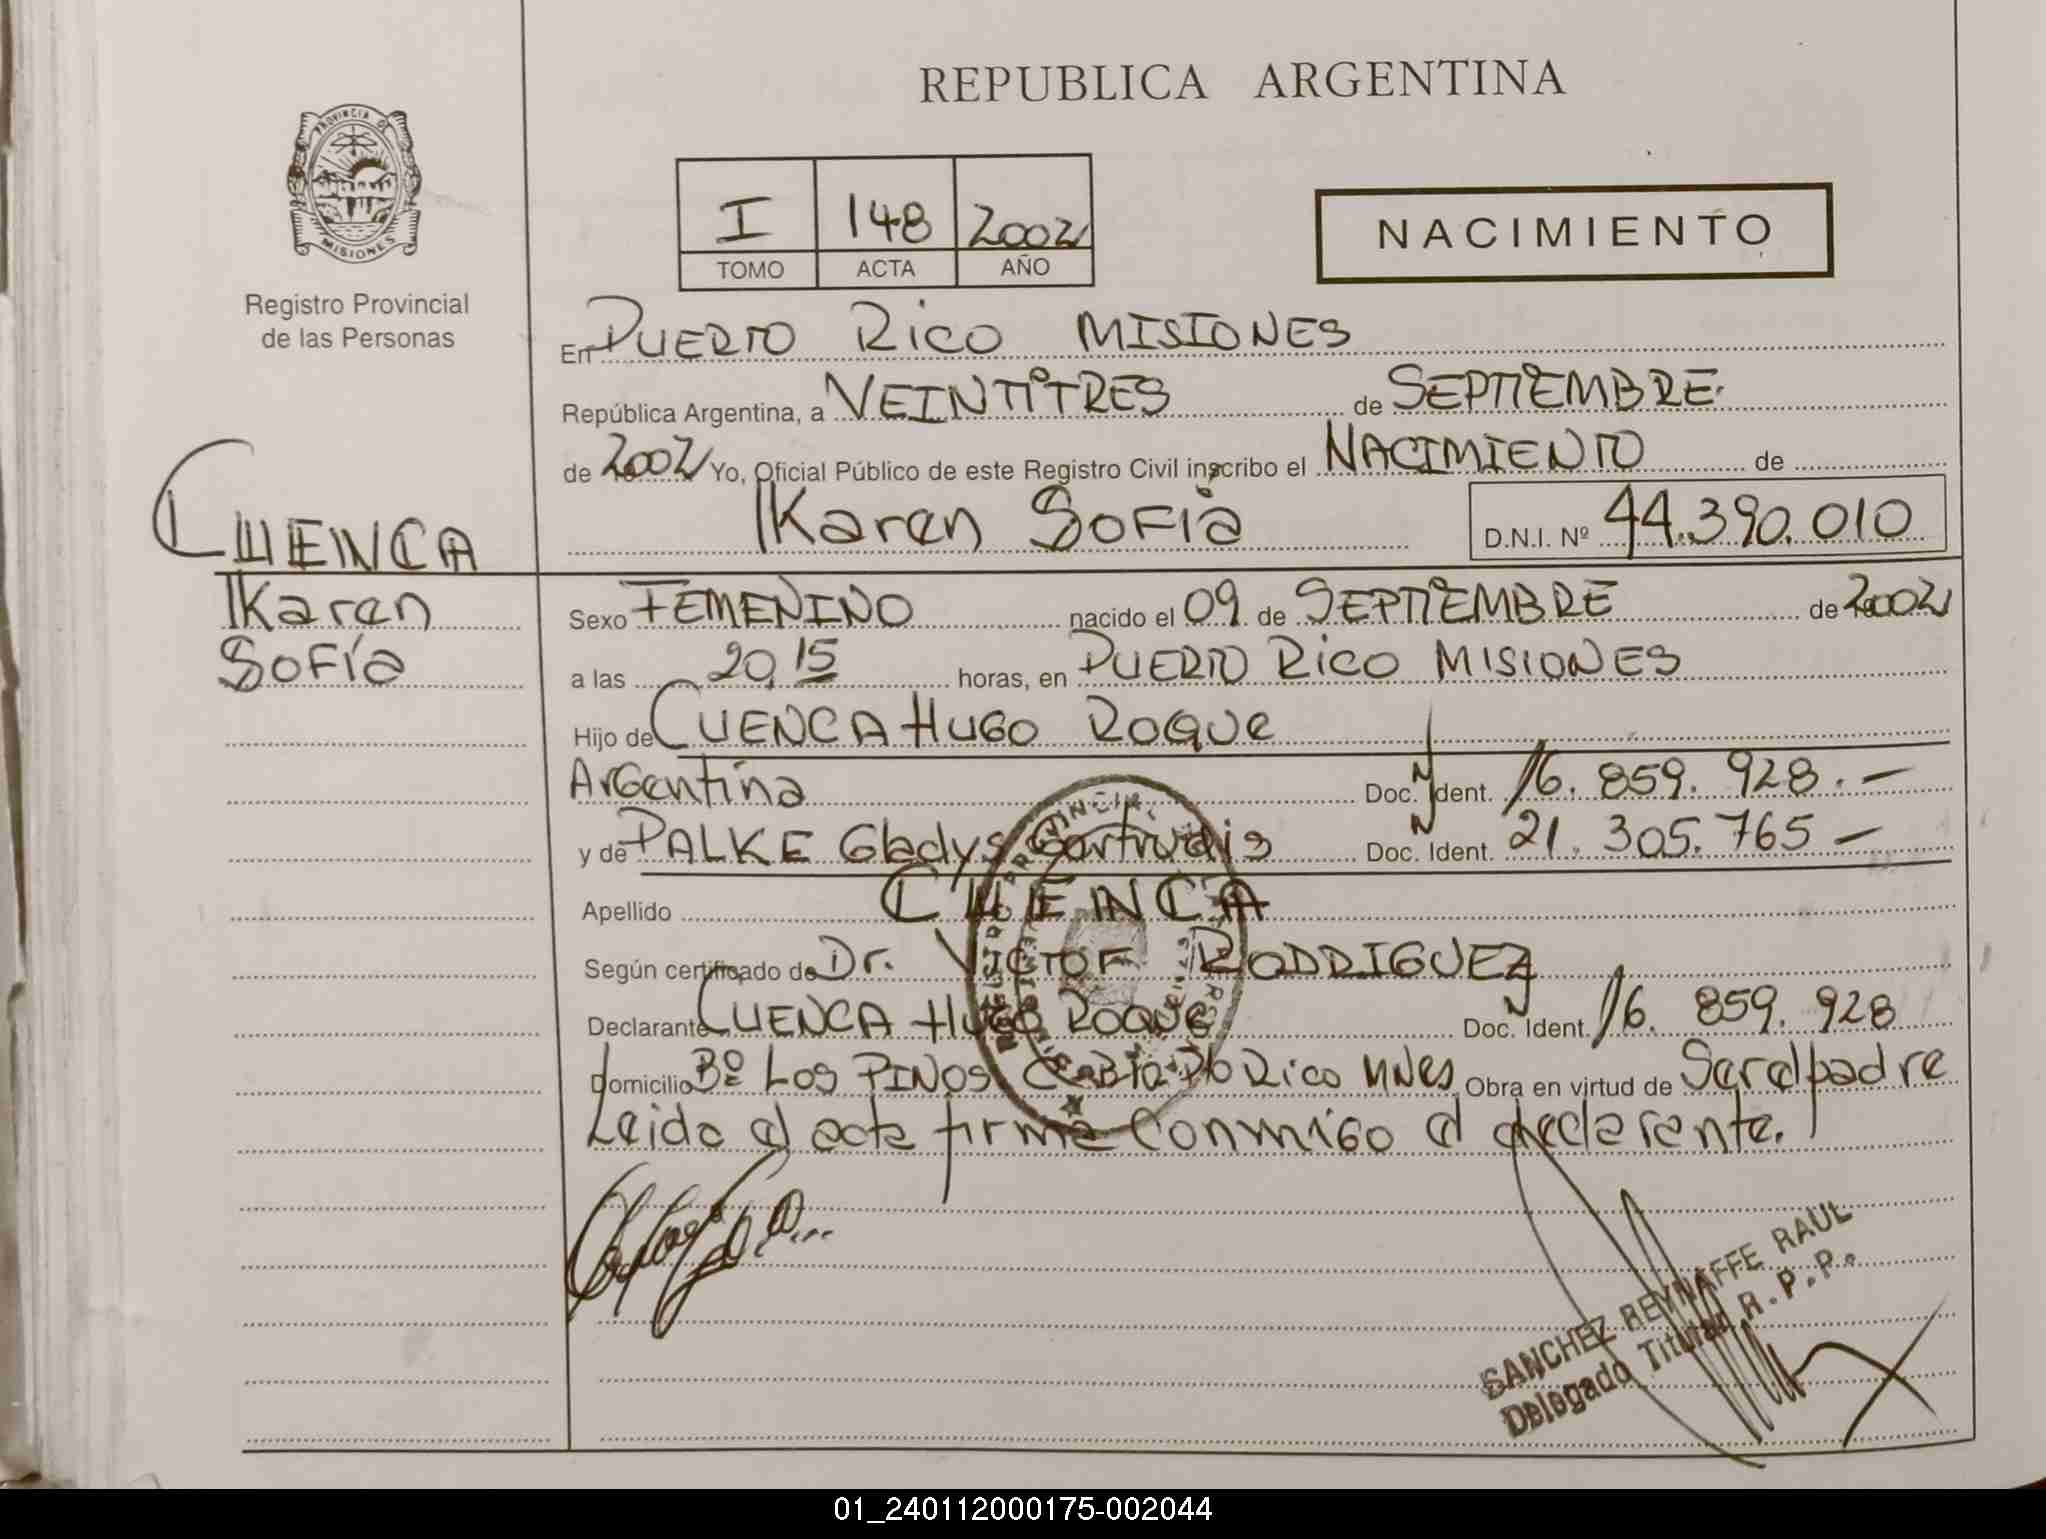 REPUBLICA ARGENTINA
PROVINCIA DE
MISIONES
Registro Provincial
de las Personas
I 148 2002
TOMO ACTA AÑO
NACIMIENTO
En PUERTO RICO MISIONES
República Argentina, a VEINTITRES de SEPTIEMBRE
de 2002 Yo, Oficial Público de este Registro Civil inscribo el NACIMIENTO de
Karen SoFia D.N.I. Nº 44.390.010
CUENCA
Karen
SoFía
Sexo FEMENINO nacido el 09 de SEPTIEMBRE de 2002
a las 20,15 horas, en PUERTO RICO MISIONES
Hijo de CUENCA HUGO ROQUE
Argentina Doc. Ident. 16.859.928.-
y de PALKE Gladys Gertrudis Doc. Ident. 21.305.765-
Apellido CUENCA
Según certificado de Dr. VICTOR RODDRIGUEZ
Declarante CUENCA HUGO ROQUE Doc. Ident. 16.859.928
Domicilio Bº LOS PINOS Pto Rico Mnes Obra en virtud de Ser el padre
Leida el acta firma conmigo el declarante.
SANCHEZ REYNAFFE RAUL
Delegado Titular R.P.P.
01_240112000175-002044